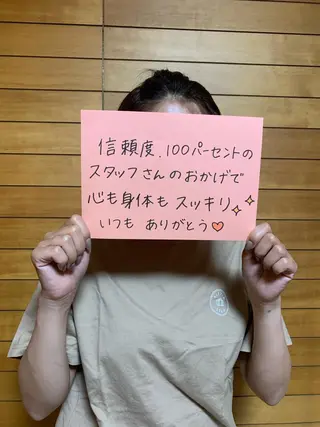 信頼度、100パーセントの
スタッフさんのおかげで
心も身体もスッキリ✨
いつも ありがとう♡